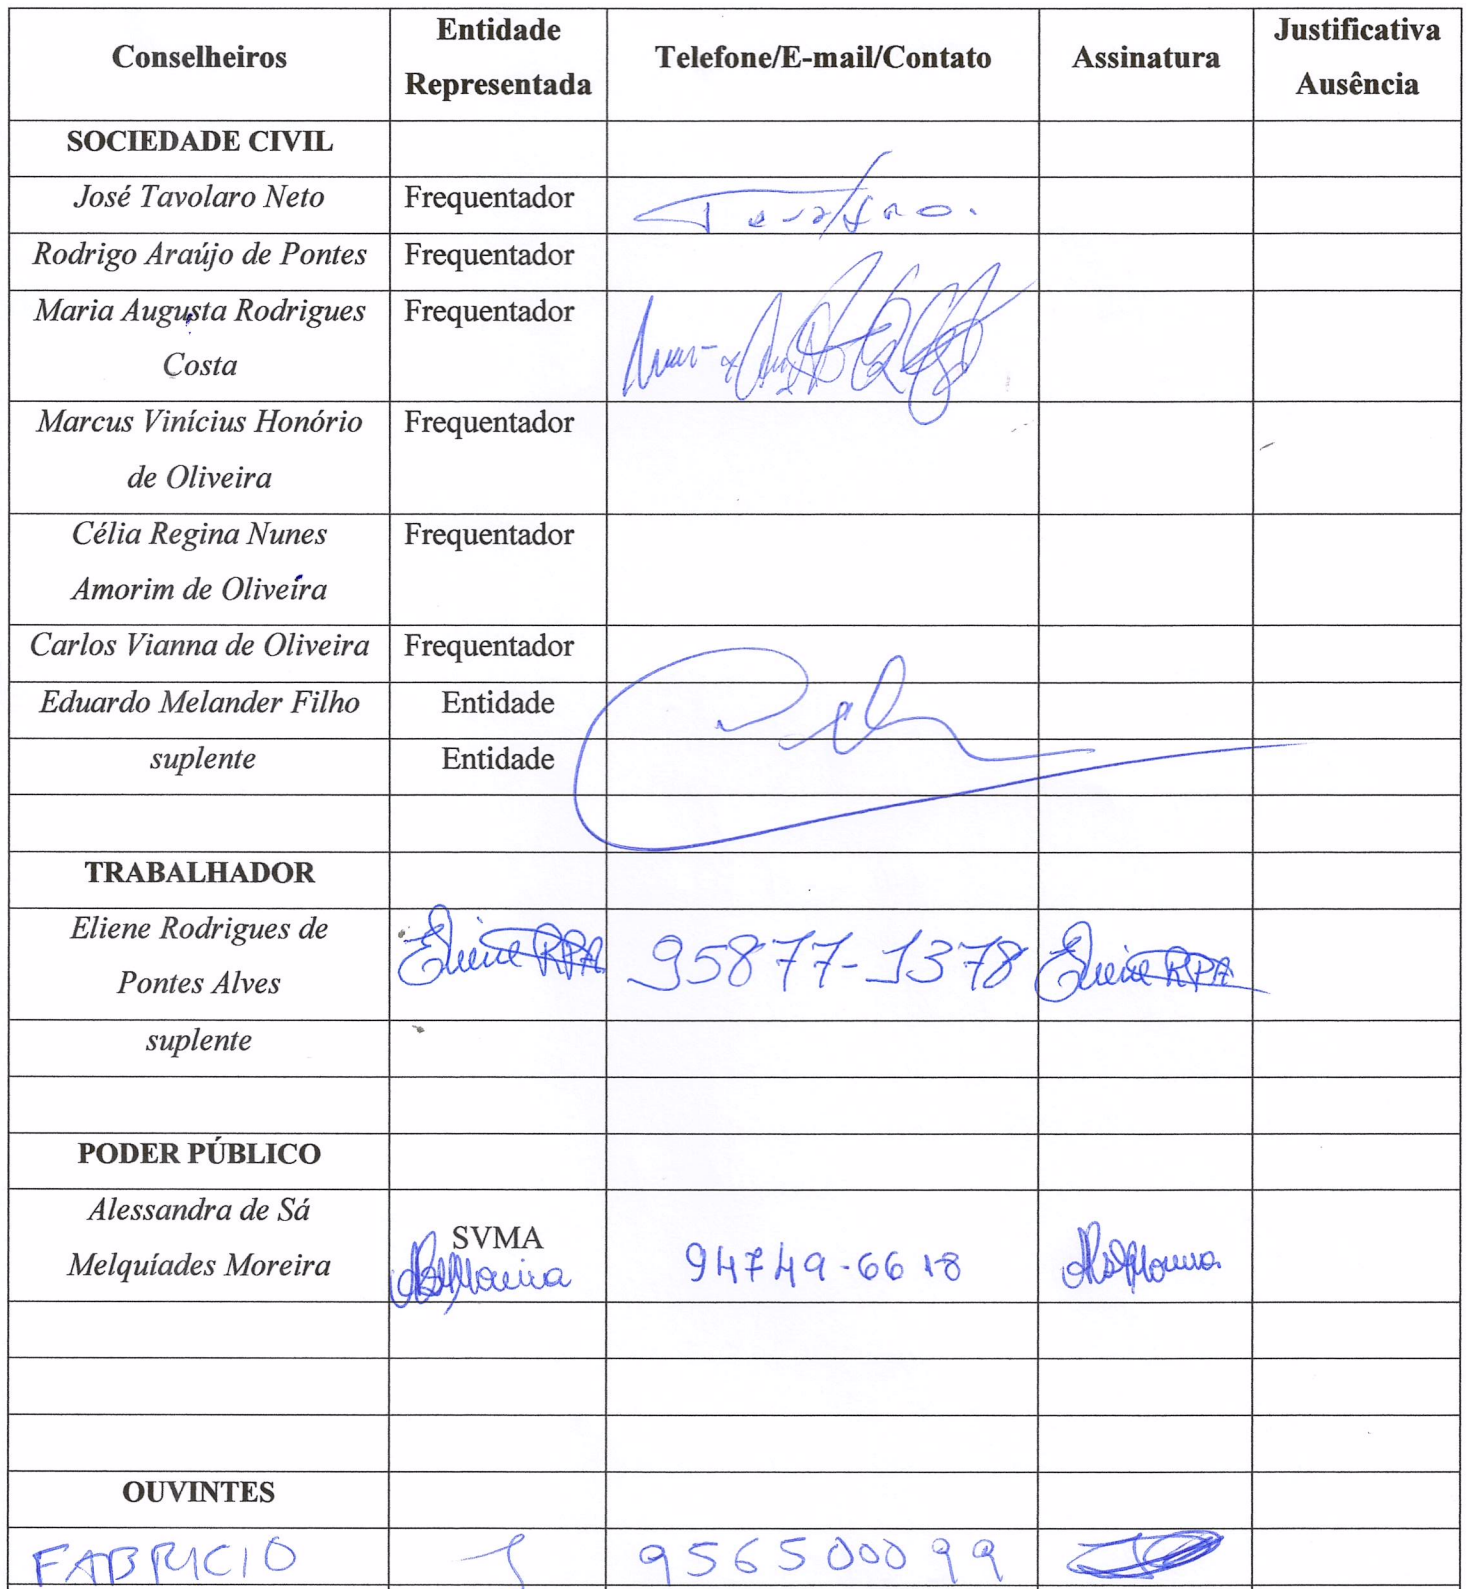 Conselheiros Entidade Representada Telefone/E-mail/Contato Assinatura Justificativa Ausência
SOCIEDADE CIVIL
José Tavolaro Neto Frequentador
Rodrigo Araújo de Pontes Frequentador
Maria Augusta Rodrigues Frequentador
Costa
Marcus Vinícius Honório Frequentador
de Oliveira
Célia Regina Nunes Frequentador
Amorim de Oliveira
Carlos Vianna de Oliveira Frequentador
Eduardo Melander Filho Entidade
suplente Entidade
TRABALHADOR
Eliene Rodrigues de
Pontes Alves Eliene RPA 95877-1378 Eliene RPA
suplente
PODER PÚBLICO
Alessandra de Sá
Melquíades Moreira SVMA 94749-6618
OUVINTES
FABRICIO 956500099